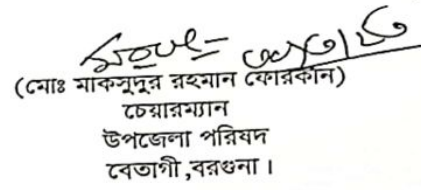 (মোঃ মাকসুদুর রহমান ফোরকান)
চেয়ারম্যান
উপজেলা পরিষদ
বেতাগী,বরগুনা।